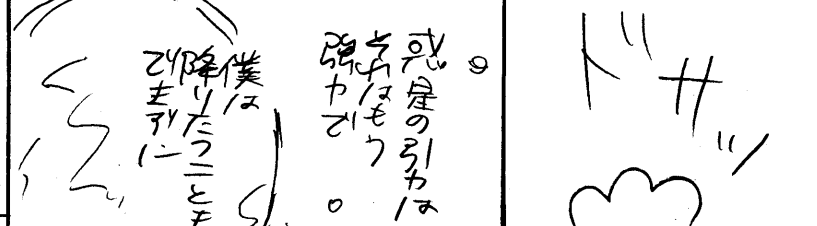 ドサッ
惑星の引力は
それはもう
強力で
僕は
降りたつことも
できずに